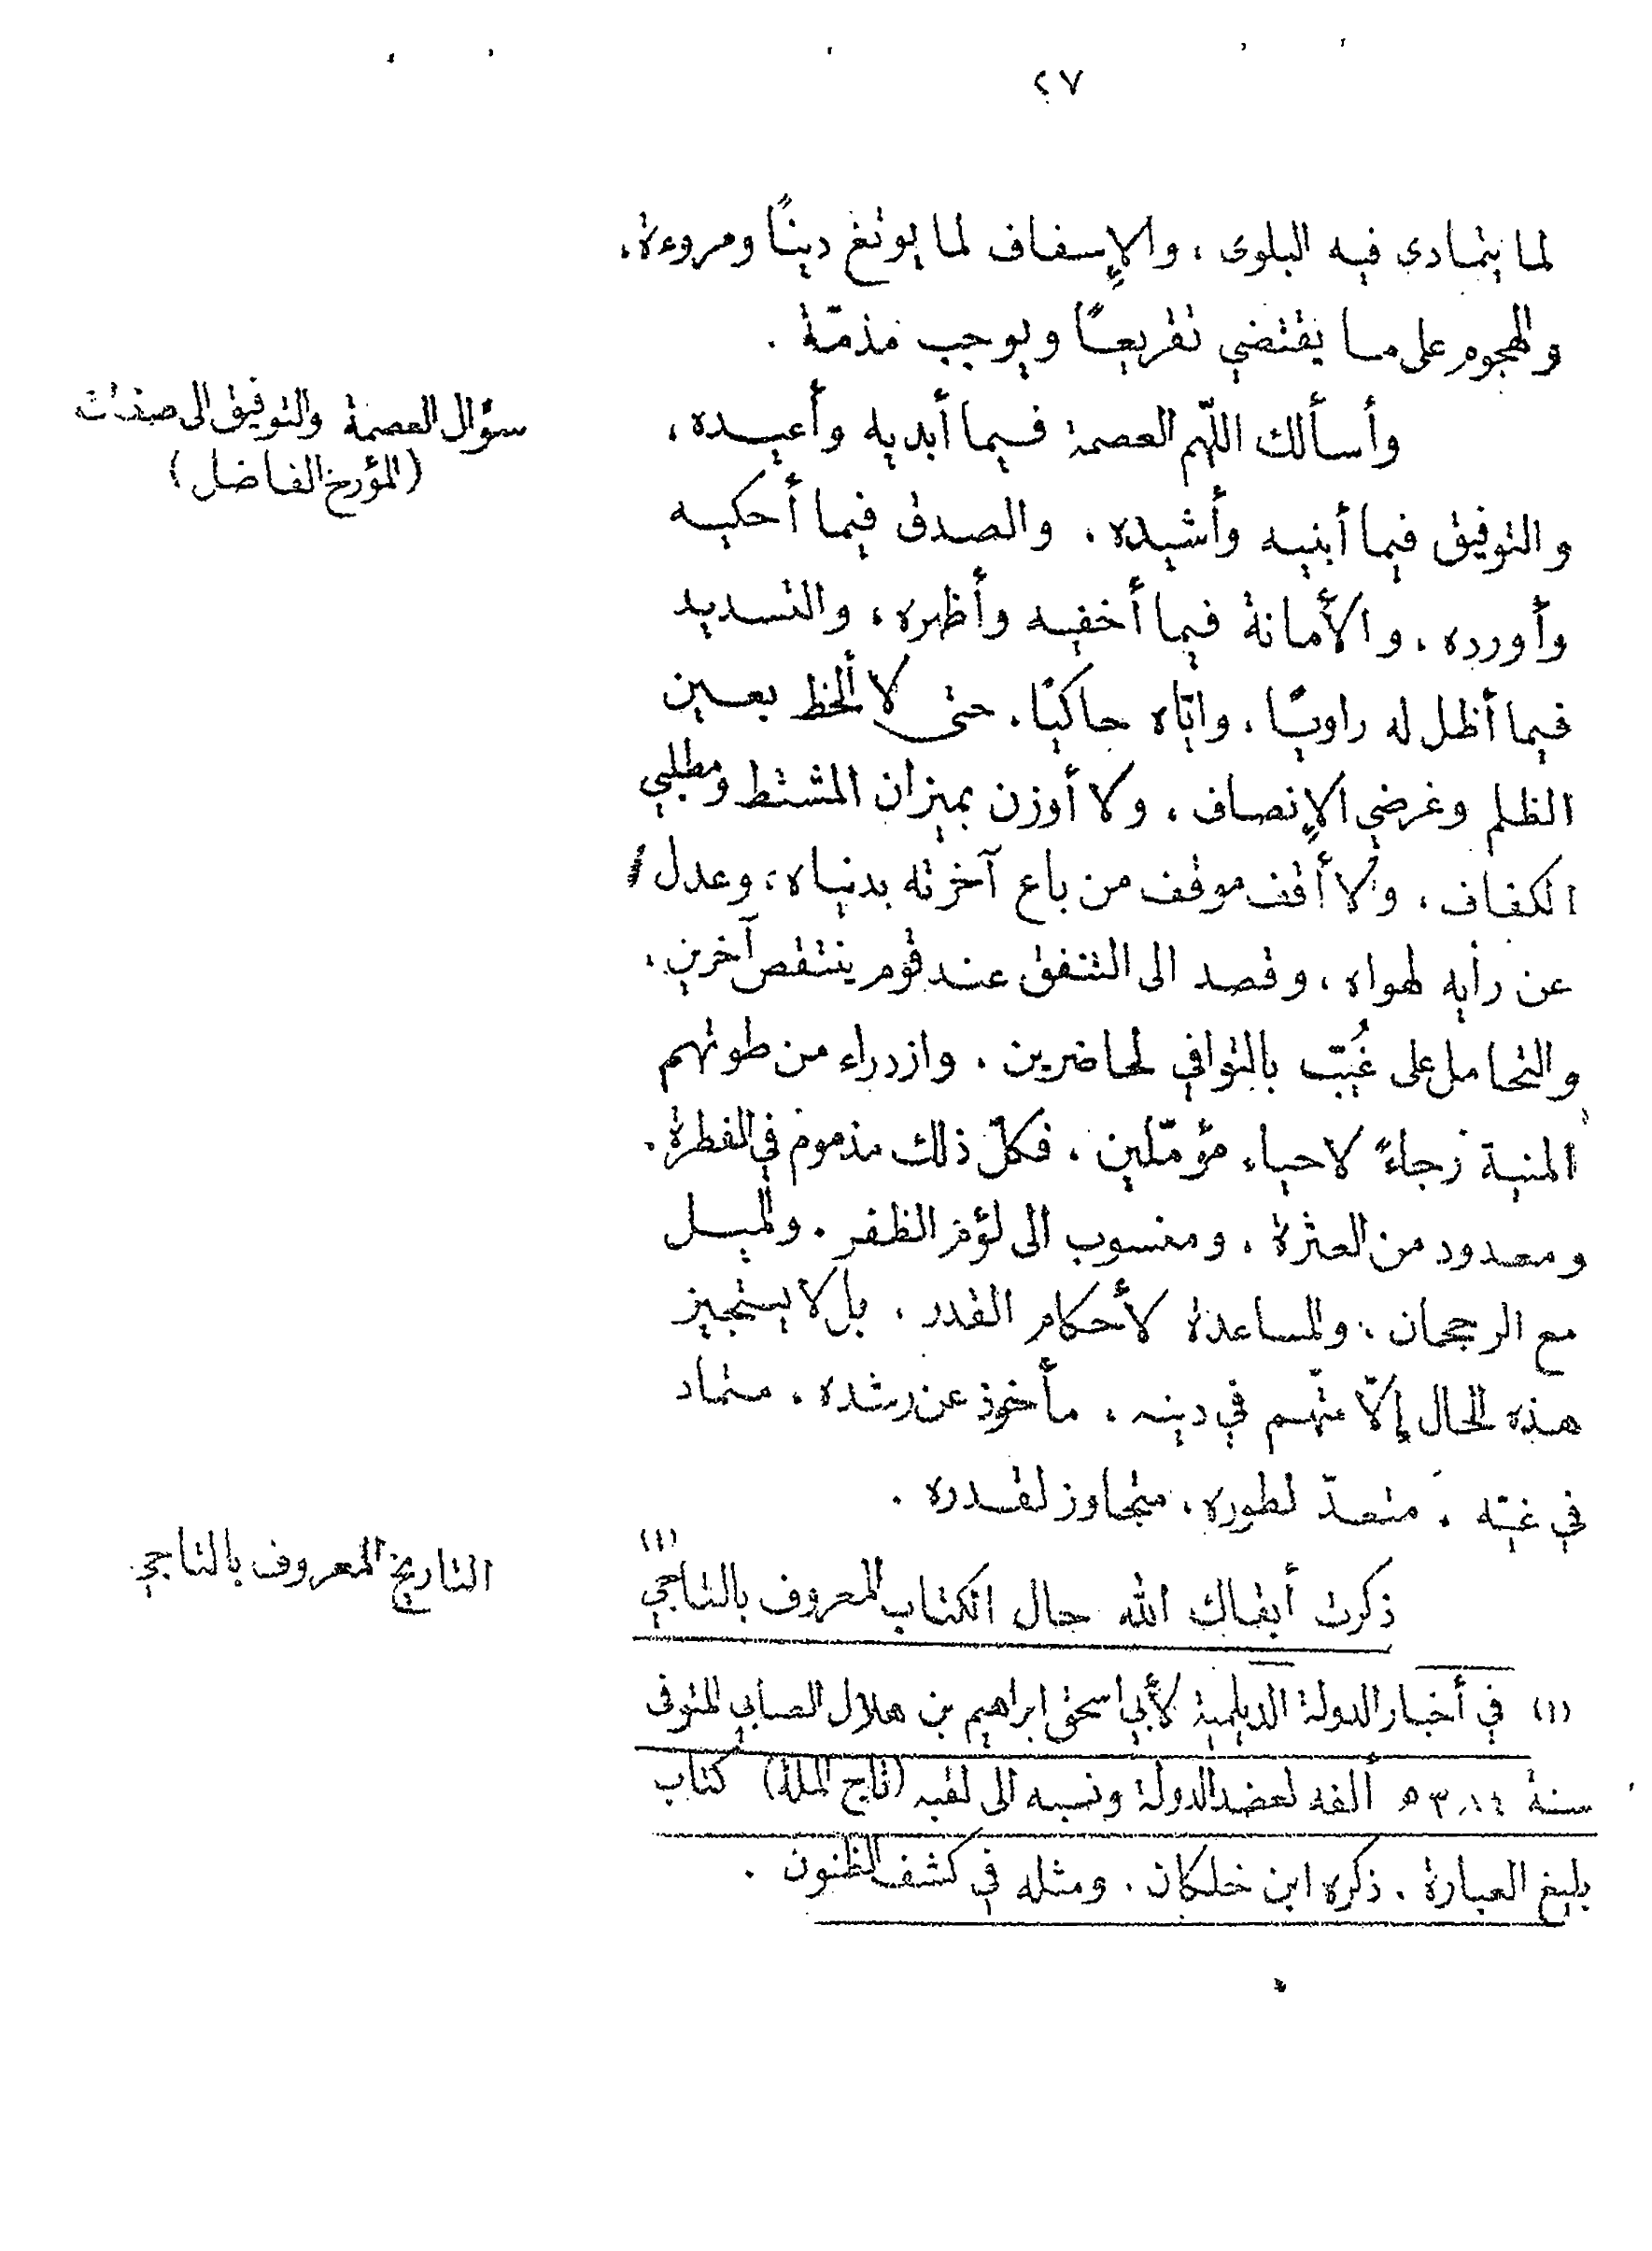 ٢٧
لما يتمادى فيه البلوى ، والإسفاف لما يوتغ دينًا ومروءة ،
والهجوم على ما يقتضي تقريعًا ويوجب مذمّة .
وأسألك اللّهم العصمة فيما أبديه وأعيده ،
سؤال العصمة والتوفيق الى صفات
(المؤرخ الفاضل)
والتوفيق فيما أبنيه وأشيده ، والصدق فيما أحكيه
وأورده ، والأمانة فيما أخفيه وأظهره ، والتسديد
فيما أظل له راويًا ، وايّاه حاكيًا . حتى لا ألحظ بعين
الظلم وغرضي الإنصاف ، ولا أوزن بميزان المشتط ومطلبي
الكفاف ، ولا أقف موقف من باع آخرته بدنياه ، وعدل
عن رأيه لهواه ، وقصد الى التنفق عند قوم ينتقص آخرين ،
والتحامل على غُيّب بالتوافي لحاضرين ، وازدراء من طوتهم
المنية زجاءً لاحياء مؤمّلين ، فكلّ ذلك مذموم في الفطرة .
ومعدود من العثرة ، ومنسوب الى لؤم الظفر . والميل
مع الرجحان ، والمساعدة لأحكام القدر ، بل لا يستجيز
هذه الحال إلاّ متّهم في دينه ، مأخوذ عن رشده ، متماد
في غيّه ، متعدّ لطوره ، متجاوز لقدره .
ذكرت أبقاك الله حال الكتاب المعروف بالتاجي (١)
التاريخ المعروف بالتاجي
(١) في أخبار الدولة الديلمية لأبي اسحق ابراهيم بن هلال الصابي المتوفى
سنة ٣٨٤ ه ألفه لعضد الدولة ونسبه الى لقبه (تاج الملة) كتاب
بليغ العبارة . ذكره ابن خلكان . ومثله في كشف الظنون .